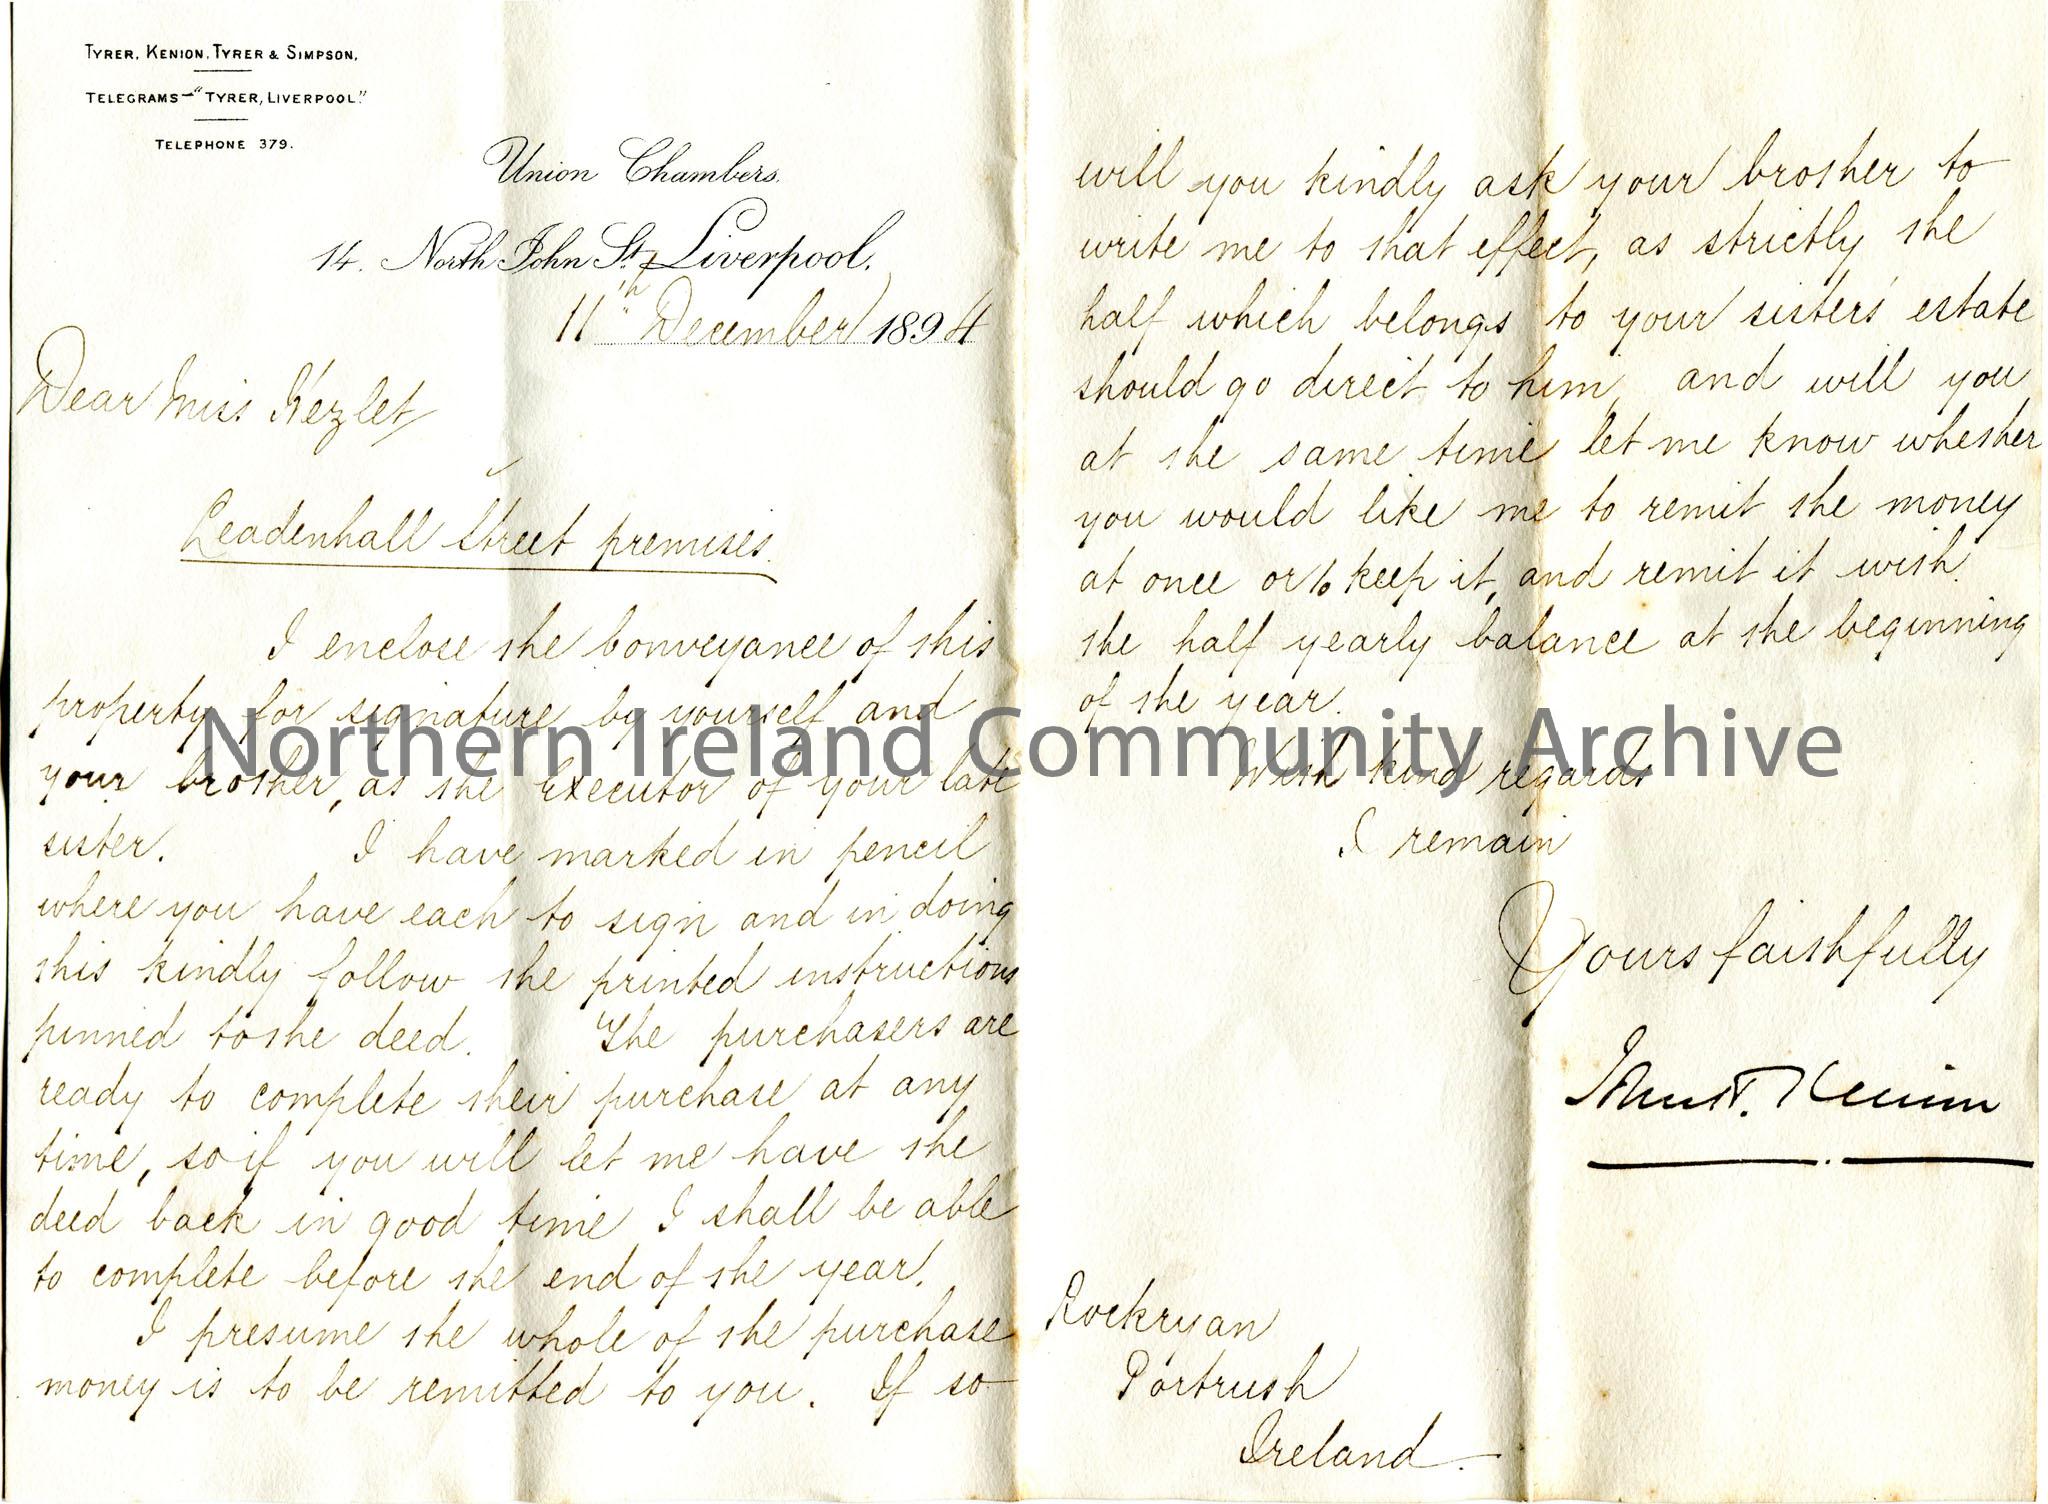 TYRER, KENION, TYRER & SIMPSON,
TELEGRAMS—"TYRER, LIVERPOOL."
TELEPHONE 379.
Union Chambers,
14. North John St., Liverpool,
11th December 1894
Dear Miss Kezlet
Leadenhall Street premises.
I enclose the Conveyance of this
property for signature by yourself and
your brother, as the Executor of your late
sister. I have marked in pencil
where you have each to sign and in doing
this kindly follow the printed instructions
pinned to the deed. The purchasers are
ready to complete their purchase at any
time, so if you will let me have the
deed back in good time I shall be able
to complete before the end of the year.
I presume the whole of the purchase
money is to be remitted to you. If so
will you kindly ask your brother to
write me to that effect, as strictly the
half which belongs to your sisters' estate
should go direct to him, and will you
at the same time let me know whether
you would like me to remit the money
at once or to keep it, and remit it with
the half yearly balance at the beginning
of the year.
With kind regards
I remain
Yours faithfully
Kenion
Rockryan
Portrush
Ireland.
Northern Ireland Community Archive